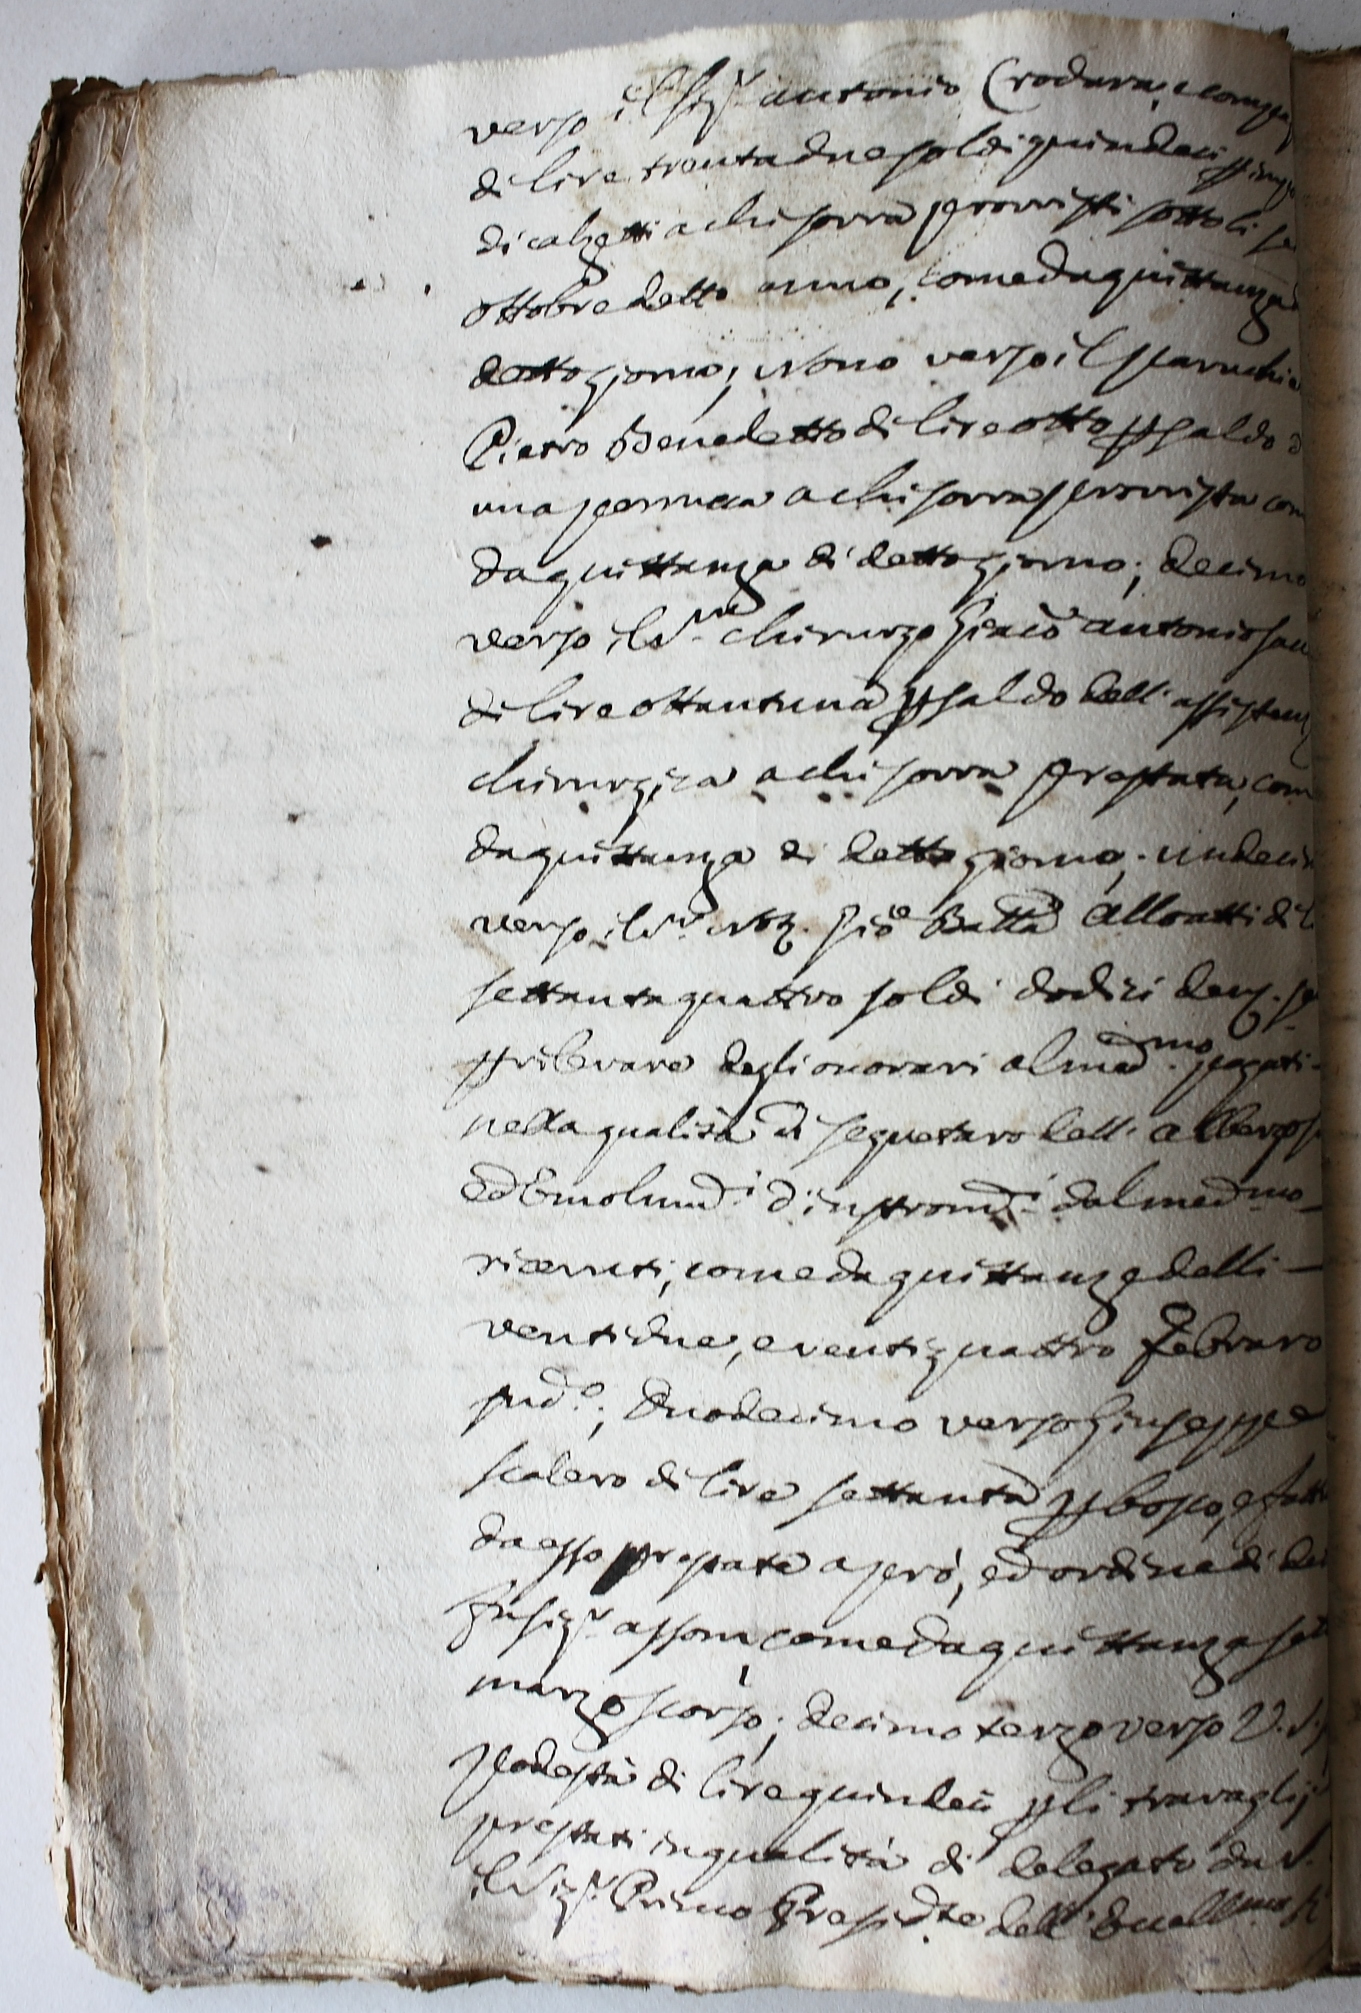 verso il Sigr antonio Crodara, e comp
di lire trenta due soldi quindeci p imp
di calzetti a chi sovra provvisti sotto li se
ottobre detto anno, come da quittanza
detto giorno; Nono verso il Paruchie
Pietro Benedetto di lire otto p saldo d
una perrucca a chi sovra provvista com
da quittanza di detto giorno; decimo
verso il Sr chirurgo Giacō antonio
di lire ottantuna p saldo dell' assistenz
chirurgica a chi sovra prestata, com
da quittanza di detto giorno; undeci
verso il Sr Not. Gioe Batta Alloatti di l
settanta quattro soldi dodici den. se
p rilevare degli onorari al medmo pagati
nella qualità di segretaro dell' albergo
ed Emolumti d'instromti dal medmo
ricevuti, come da quittanze delli
venti due, e venti quattro Febraro
sudo; Duodecimo verso Giuseppe
scalero di lire settanta p bosco, e fatt
da esso prestate a però, ed ordine di de
fu Sigr assom, come da quittanza set
marzo scorso; decimo terzo verso V. S.
Podestà di lire quindeci p li travaglij
prestati in qualità di delegato da S.
il Sigr Primo Presidte dell' Eccellmo